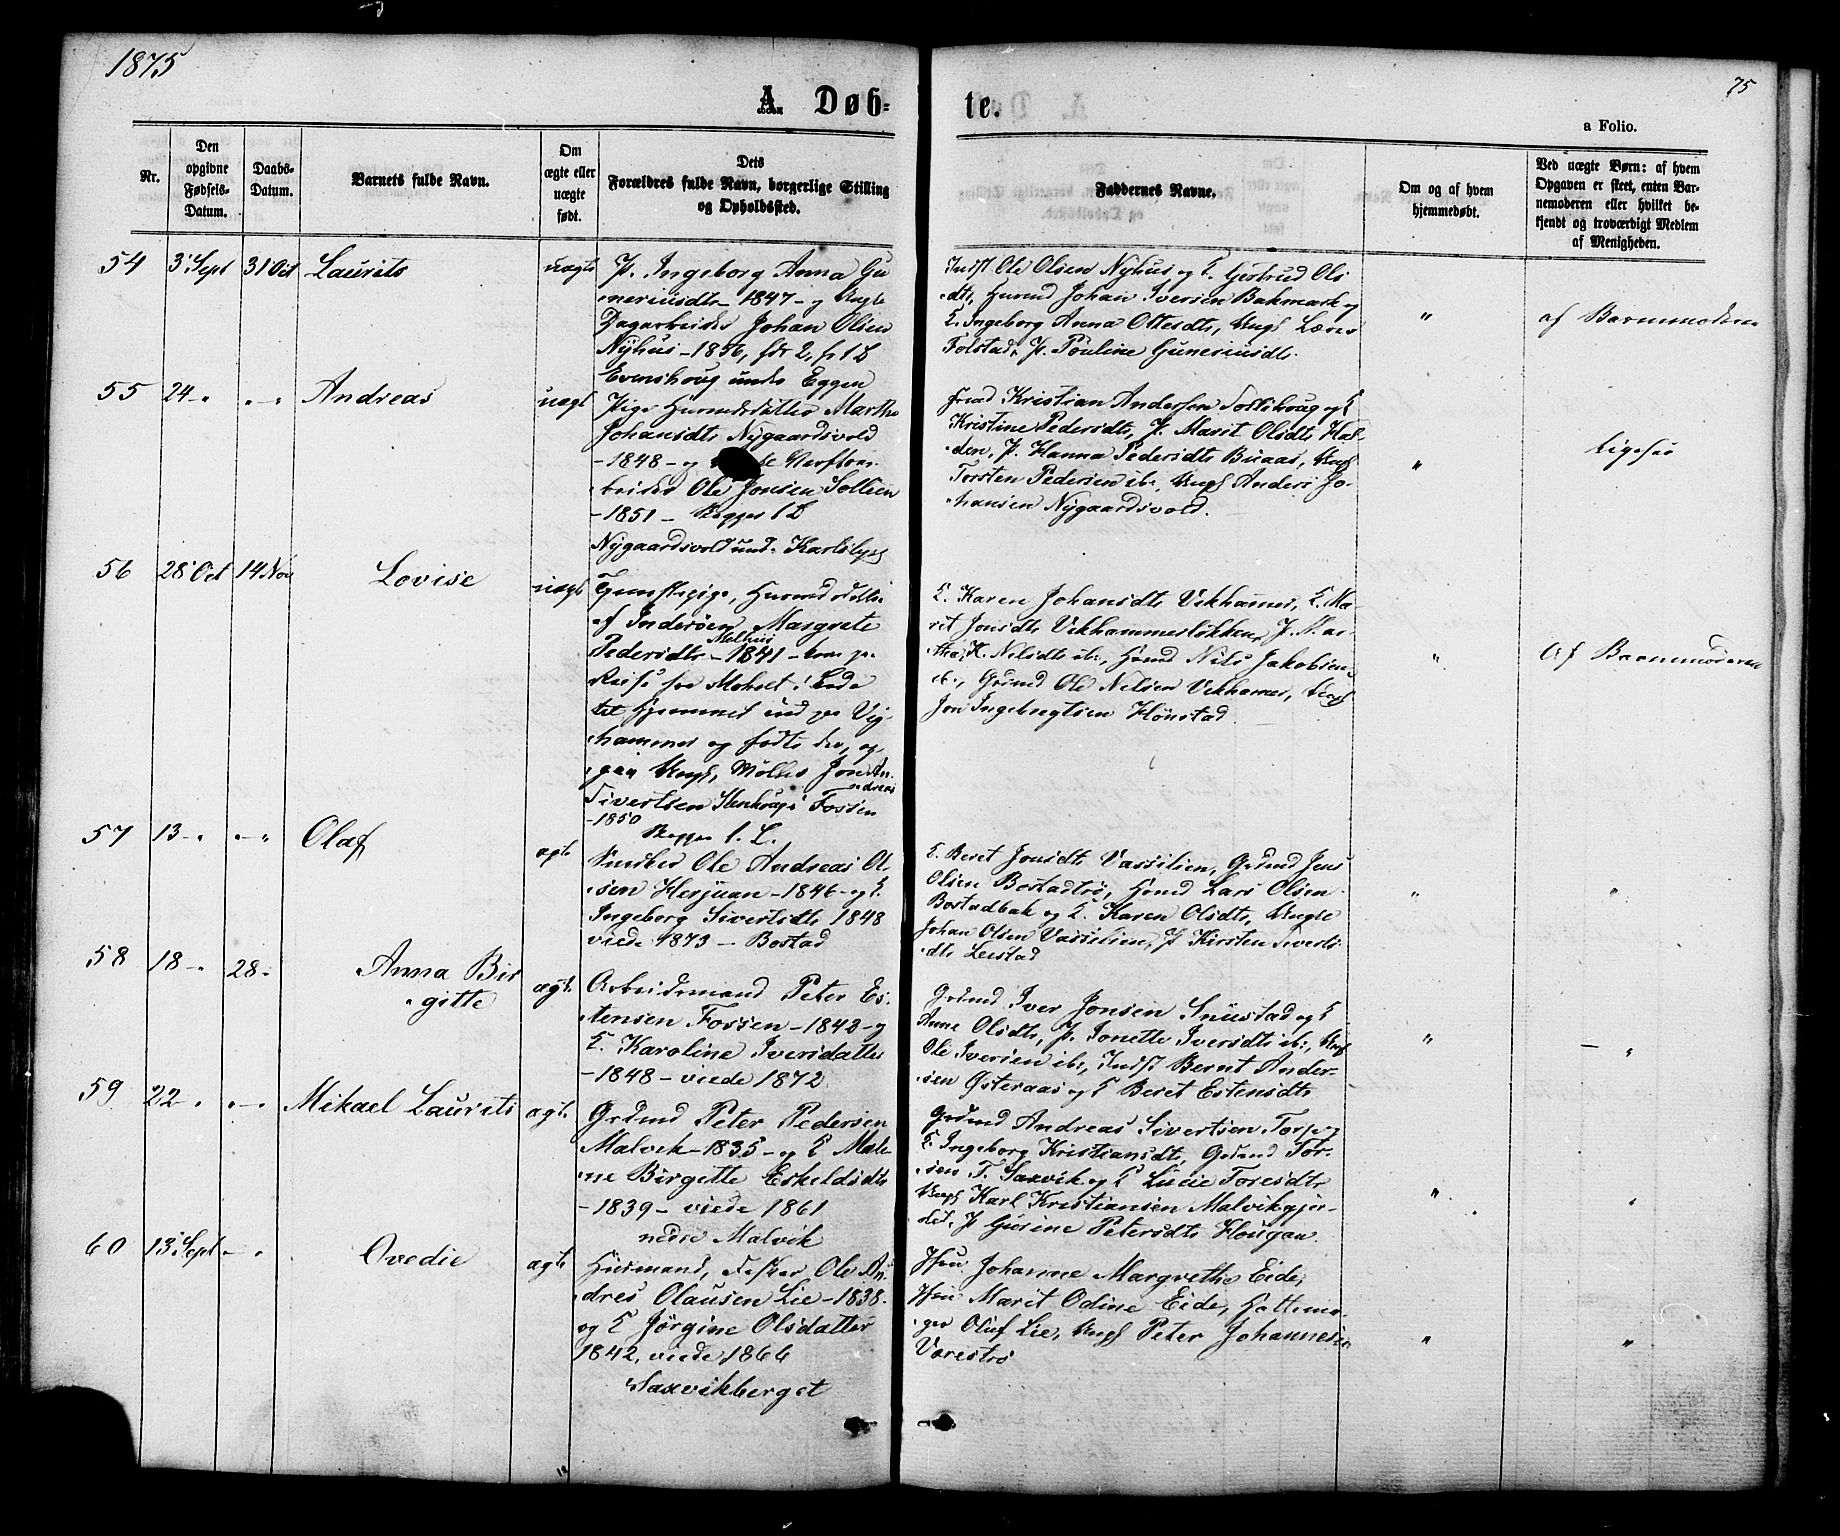 1875
75
A. Døb-
te.
a Folio.
Nr.
Den
opgivne
Fødsels-
Datum.
Daabs-
Datum.
Barnets fulde Navn.
Om
ægte eller
uægte
født.
Dets
Forældres fulde Navn, borgerlige Stilling
og Opholdssted.
Faddernes Navne.
Om og af hvem
hjemmedøbt.
Ved uægte Børn: af hvem
Opgaven er skeet, enten Bar-
nemoderen eller hvilket be-
kjendt og troværdigt Medlem
af Menigheden.
54 3 Sept 31 Oct Laurits uægte
P. Ingeborg Anna Gu
neriusdtr - 1847 - og Ungk
Dagarbeider Johan Olsen
Nyhus - 1856, for 2, f 1 L
Evenshoug under Eggen
Indst Ole Olsen Nyhus og E. Gertrud Ols
dtr, Husmd Johan Iversen Bakmark og
E. Ingeborg Anna Ottesdtr, Ungk Lars
Folstad, P. Pauline Guneriusdtr.
"
af Barnemoderen
55 24 - " " - " Andreas uægt
Pige Husmdsdatter Marthe
Johansdtr Nygaardsvold
- 1848 - og
beider Ole Jonsen Sollien
- 1851 - Begges 1 L
Nygaardsvold und. Karlslyst
Kristian Andersen og E
Kristine Pedersdtr, P. Marit Olsdtr Hal-
den, P. Hanna Pedersdtr Buaas, Ungk
Torsten Pedersen ib:, Ungk Anders Jo-
hansen Nygaardsvold.
"
ligesaa
56 28 Oct 14 Nov Lovise uægt
Tjenestepige, Husmdsdatter
af Inderøen Margrete
Pedersdtr Melhus - 1841 - kom paa
Reise fra Moholt i Lade
til Hjemmet ind paa Vig-
hammer og fødte der, og
Ungk, Møller Jon An-
dreas
Sivertsen Stenhoug i Fossen
- 1850
Begges 1. L.
E. Karen Johansdtr Vikhamer, E. Ma-
rit Jonsdtr Vikhammerløkken, P. Mar-
tha K. Nilsdtr ib:, Husmd Nils Jakobsen
ib:, Grdmd Ole Nelsen Vikhamer, Ungk
Jon Ingebrigtsen Hønstad.
"
Af Barnemoderen
57 13 - " " - " Olaf ægte
Ole Andreas Ol-
sen Herjuan - 1846 - og E.
Ingeborg Sivertsdtr 1848
viede 1873 - Bostad
E. Beret Jonsdtr Vassilien, Grdmd Jens
Olsen Bostadtrø, Husmd Lars Olsen
Bostadbak og E. Karen Olsdtr, Ungk
Johan Olsen Vassilien, P Kirsten Siverts
dtr Leistad
"
"
58 18 - " 28 - Anna Bir
gitte
ægt.
Arbeidsmand Peter Es-
tensen Fossen - 1843 - og
E. Karoline Iversdatter
- 1848 - viede 1872
Grdmd Iver Jonsen Snustad og E
Anne Olsdtr, P. Jonette Iversdtr ib:, Ungk
Ole Iversen ib:, Indst Bernt Ander-
sen Østeraas og E Beret Estensdtr
"
- "
59 22 - " " - " Mikael Laurits ægte
Grdmd Peter Pedersen
Malvik - 1835 - og E Male
ne Birgitte Eskeldsdtr
- 1839 - viede 1861
nedre Malvik
Grdmd Andreas Sivertsen Torp og
E. Ingeborg Kristiansdt, Grdmd Tor-
sten T. Saxvik og E Lucie Toresdtr
Ungk Karl Kristiansen Malvikgjer-
det, P Gurine Petersdtr Hougan
"
"
60 13 Sept - " Ovedie ægte
Husmand, Fisker Ole An
dres Olausen Lie - 1838 -
og E Jørgine Olsdatter
1842, viede 1866
Saxvikberget
Jfru Johanne Margrethe Eide,
Jfru Marit Odine Eide, Hattema-
ger Oluf Lie, Ungk Peter Johannesen
Værestrø
"
"